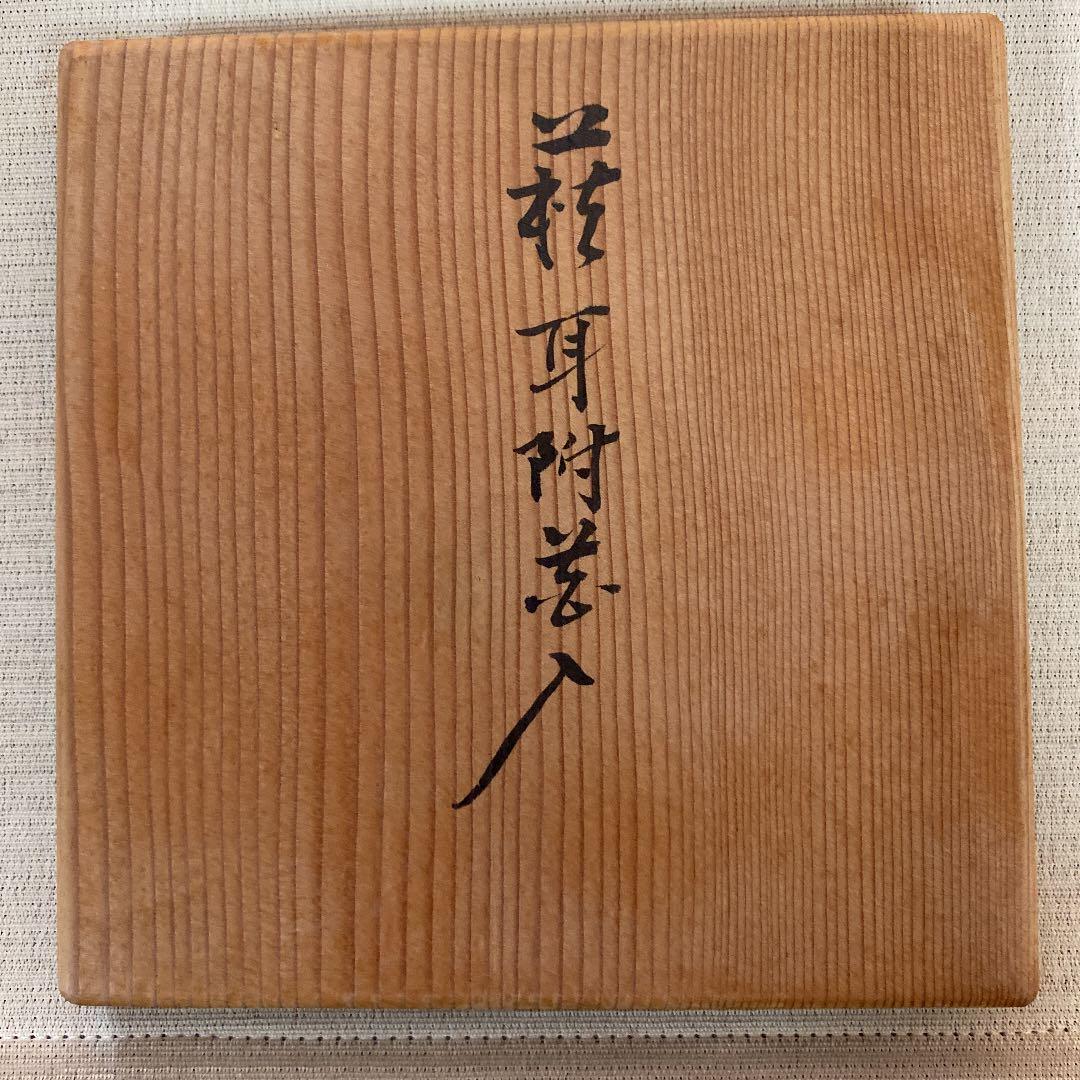 萩耳附花入